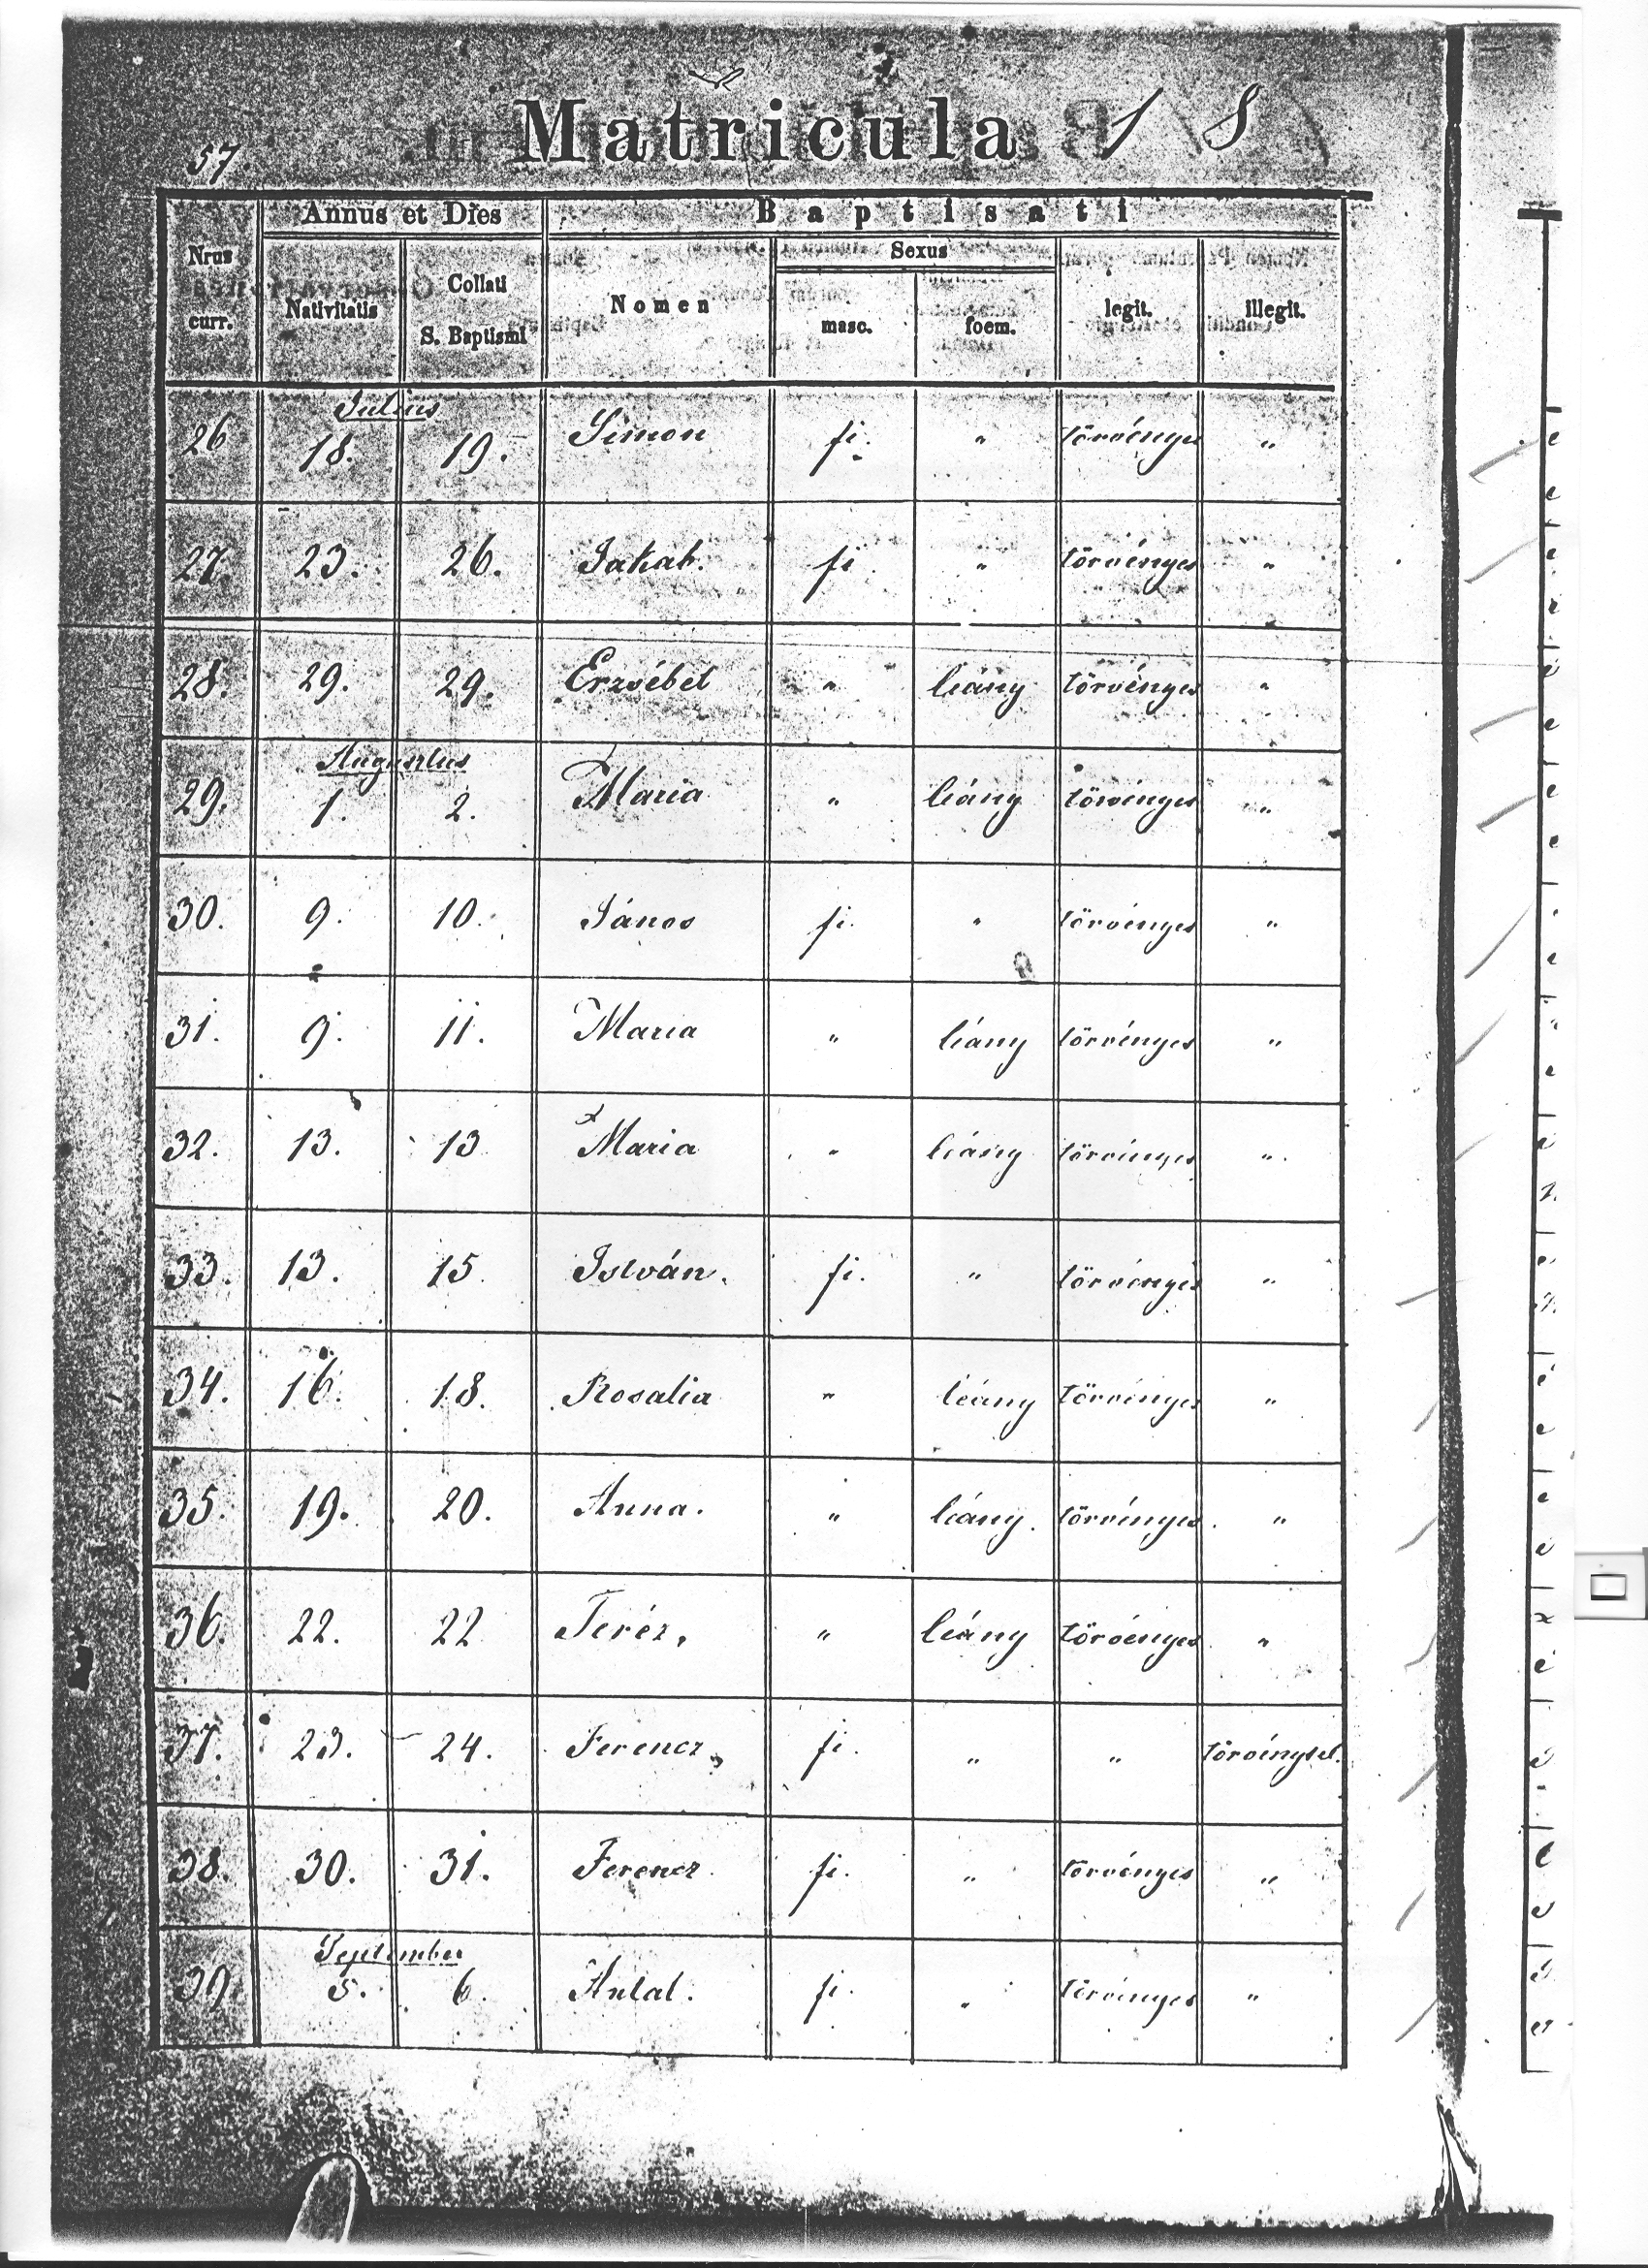 57.
Matricula 1 8
Nrus curr.
Annus et Dies
Baptisati
Nativitatis
Collati S. Baptismi
Nomen
Sexus
masc.
foem.
legit.
illegit.
Julius
26 18. 19. Simon fi. " törvényes "
27. 23. 26. Jakab. fi " törvényes "
28. 29. 29. Erzsébet " leány törvényes "
Augustus
29. 1. 2. Maria " leány törvényes "
30. 9. 10. János fi. " törvényes "
31. 9. 11. Maria " leány törvényes "
32. 13. 13 Maria " leány törvényes "
33. 13. 15. István. fi. " törvényes "
34. 16. 18. Rosalia " leány törvényes "
35. 19. 20. Anna. " leány. törvényes "
36. 22. 22 Teréz. " leány törvényes "
37. 23. 24. Ferencz fi. " " törvénytel.
38. 30. 31. Ferencz fi. " törvényes "
September
39 5. 6. Antal. fi. " törvényes "